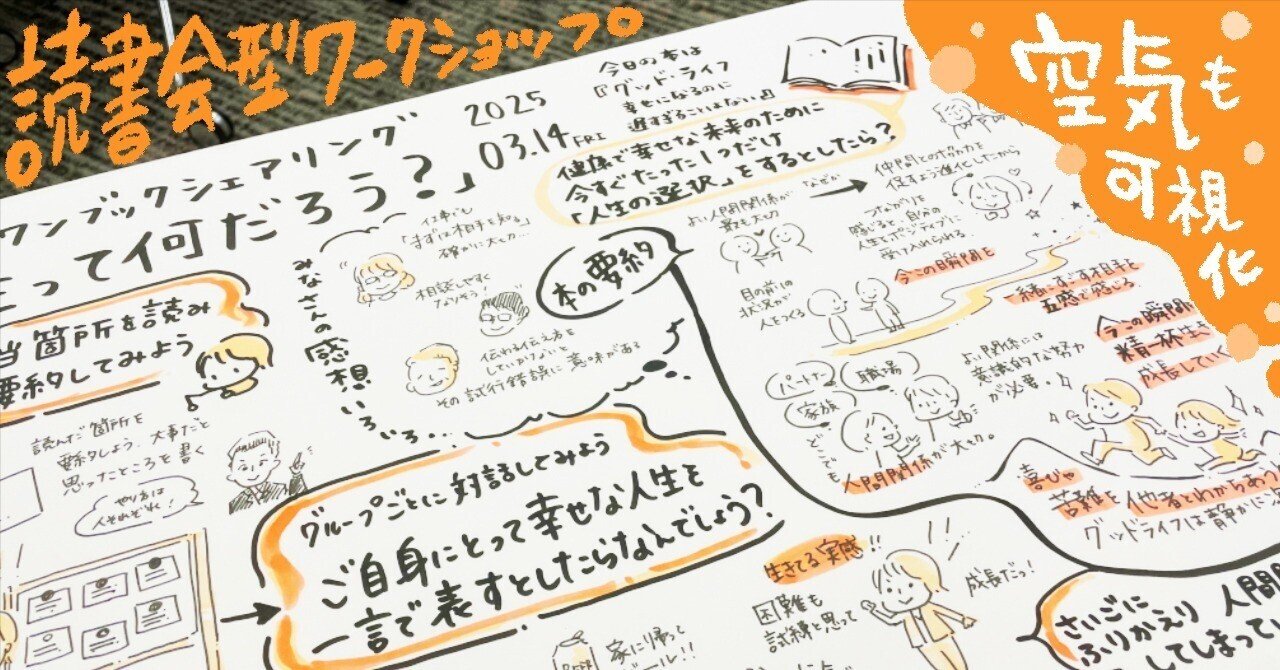 読書会型ワークショップ
空気も
可視化
ワンブックシェアリング
2025
03.14 FRI
って何だろう?」
今日の本は
『グッド・ライフ
幸せになるのに
遅すぎることはない』
健康で幸せな未来のために
今すぐたった1つだけ
「人生の選択」をするとしたら?
当箇所を読み
要約してみよう
読んだ箇所を
要約しよう。大事だと
思ったところを書く
やり方は
人それぞれ!
みなさんの感想いろいろ…
「まずは相手を知る」
確かに大切…
相談しやすく
なりそう
伝わる伝え方を
していかないと
その試行錯誤に意味がある
本の要約
よい人間関係が
最も大切
なぜか
仲間との協力を
促すよう進化したから
つながりを
感じると、自分の
人生をポジティブに
受け入れられる
目の前の
状況が
人をつくる
今この瞬間を
緒にすごす相手を
五感で感じる
パートナー
職場
家族
どこでも
人間関係が大切。
よい関係には
意識的な努力
が必要。
今この瞬間を
精一杯生き
成長していく
喜びや
苦難を
他者とわかちあう
グッドライフは静かに
グループごとに対話してみよう
ご自身にとって幸せな人生を
一言で表すとしたらなんでしょう?
生きてる実感!!
困難も
試練と思って
成長だっ!
家に帰って
ビール!!
さいごに
ふりかえり
人間関
してしまってい